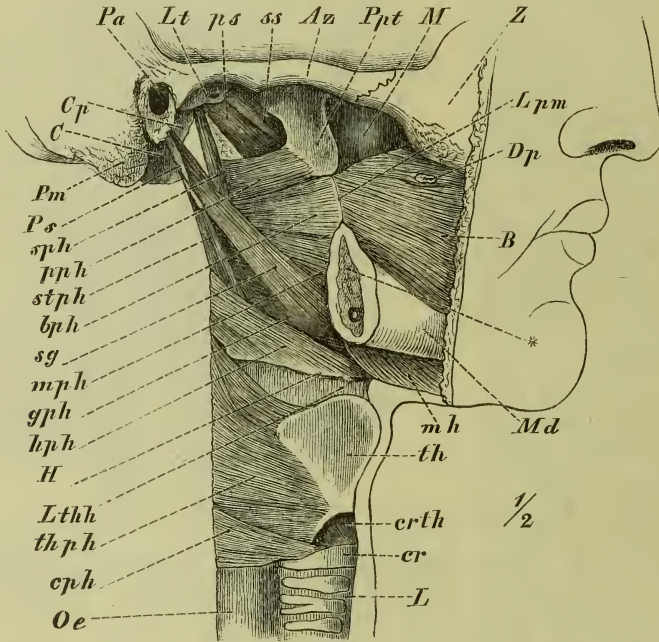 Pa Lt ps ss Az Ppt M Z
Cp
C
Lpm
Dp
Pm
Ps
sph
pph
stph
bph
sg
mph
gph
hph
H
Lthh
thph
cph
Oe
B
*
Md
mh
th
1/2
crth
cr
L